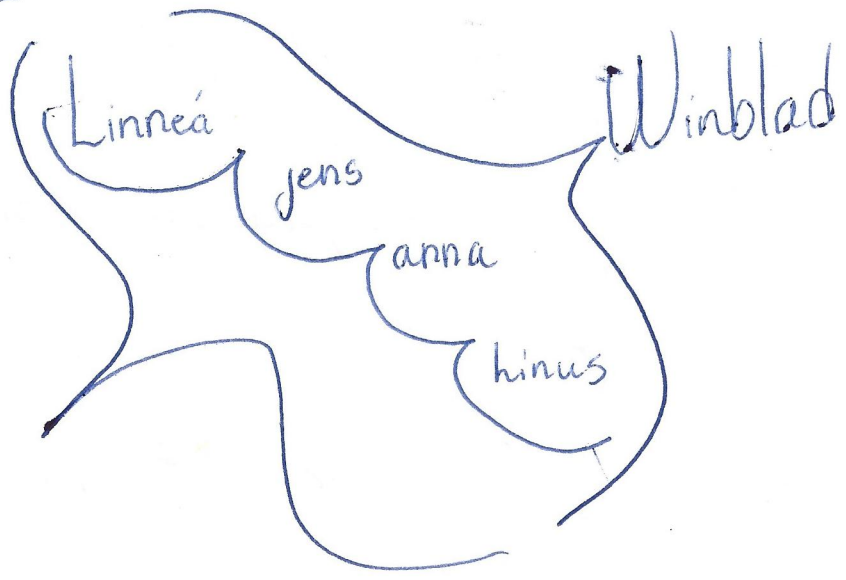 Linneá
Winblad
jens
anna
hinus